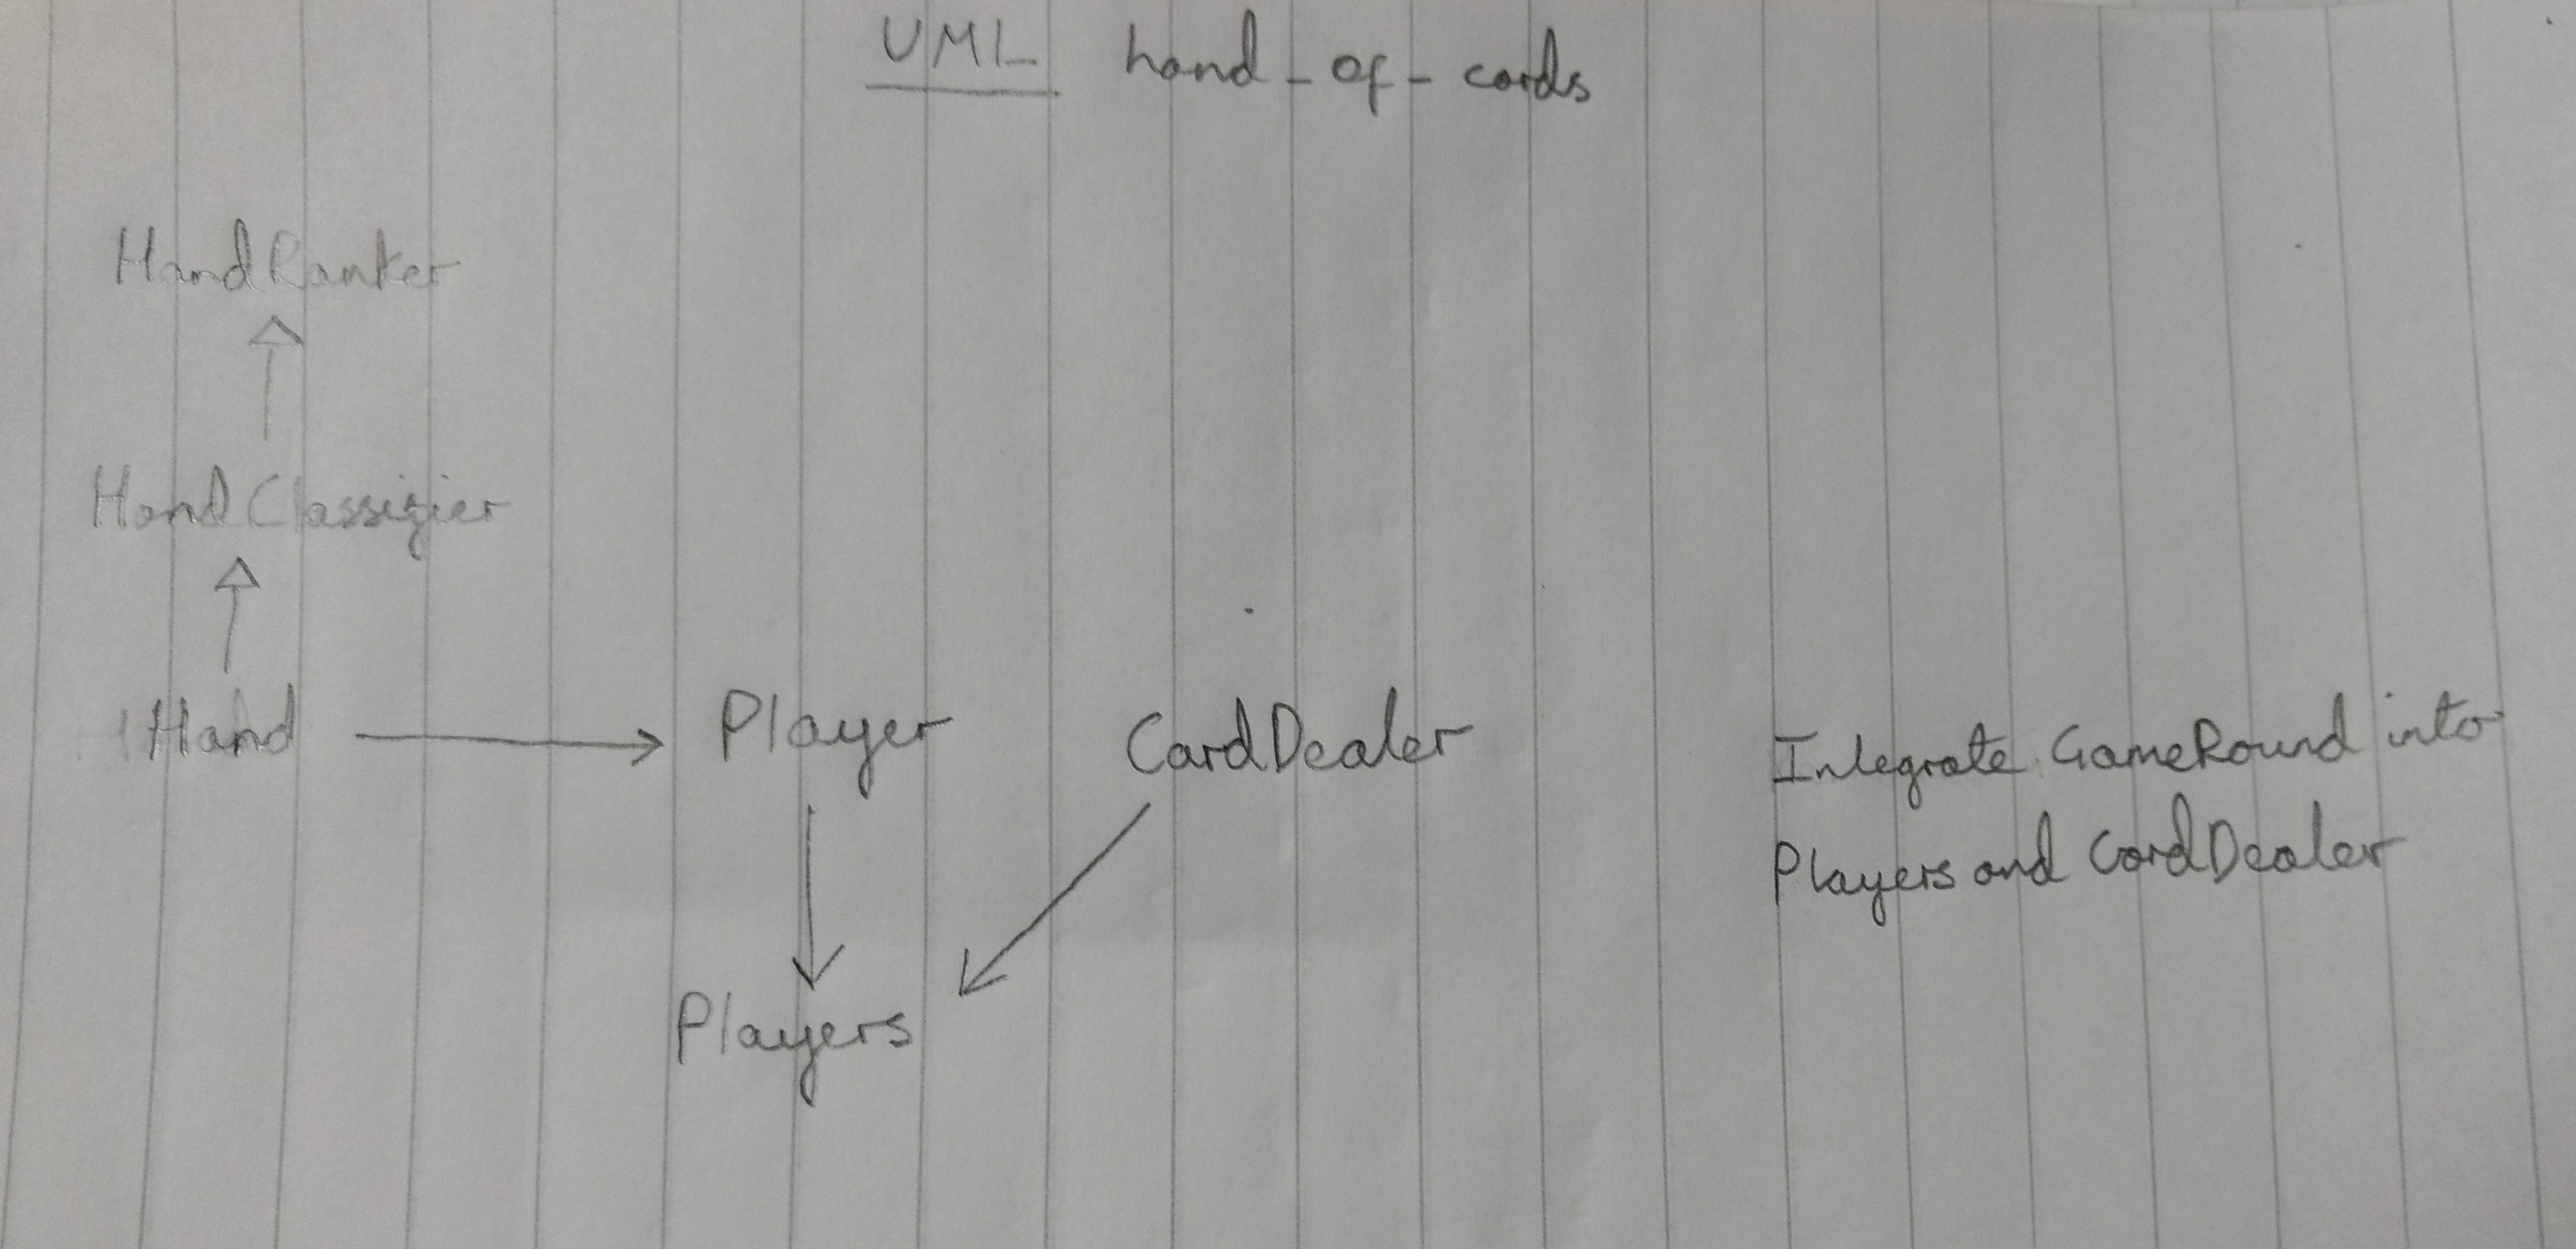 UML hand_of_cards
HandRanker
HandClassifier
Hand
Player
CardDealer
Integrate GameRound into
Players and CardDealer
Players